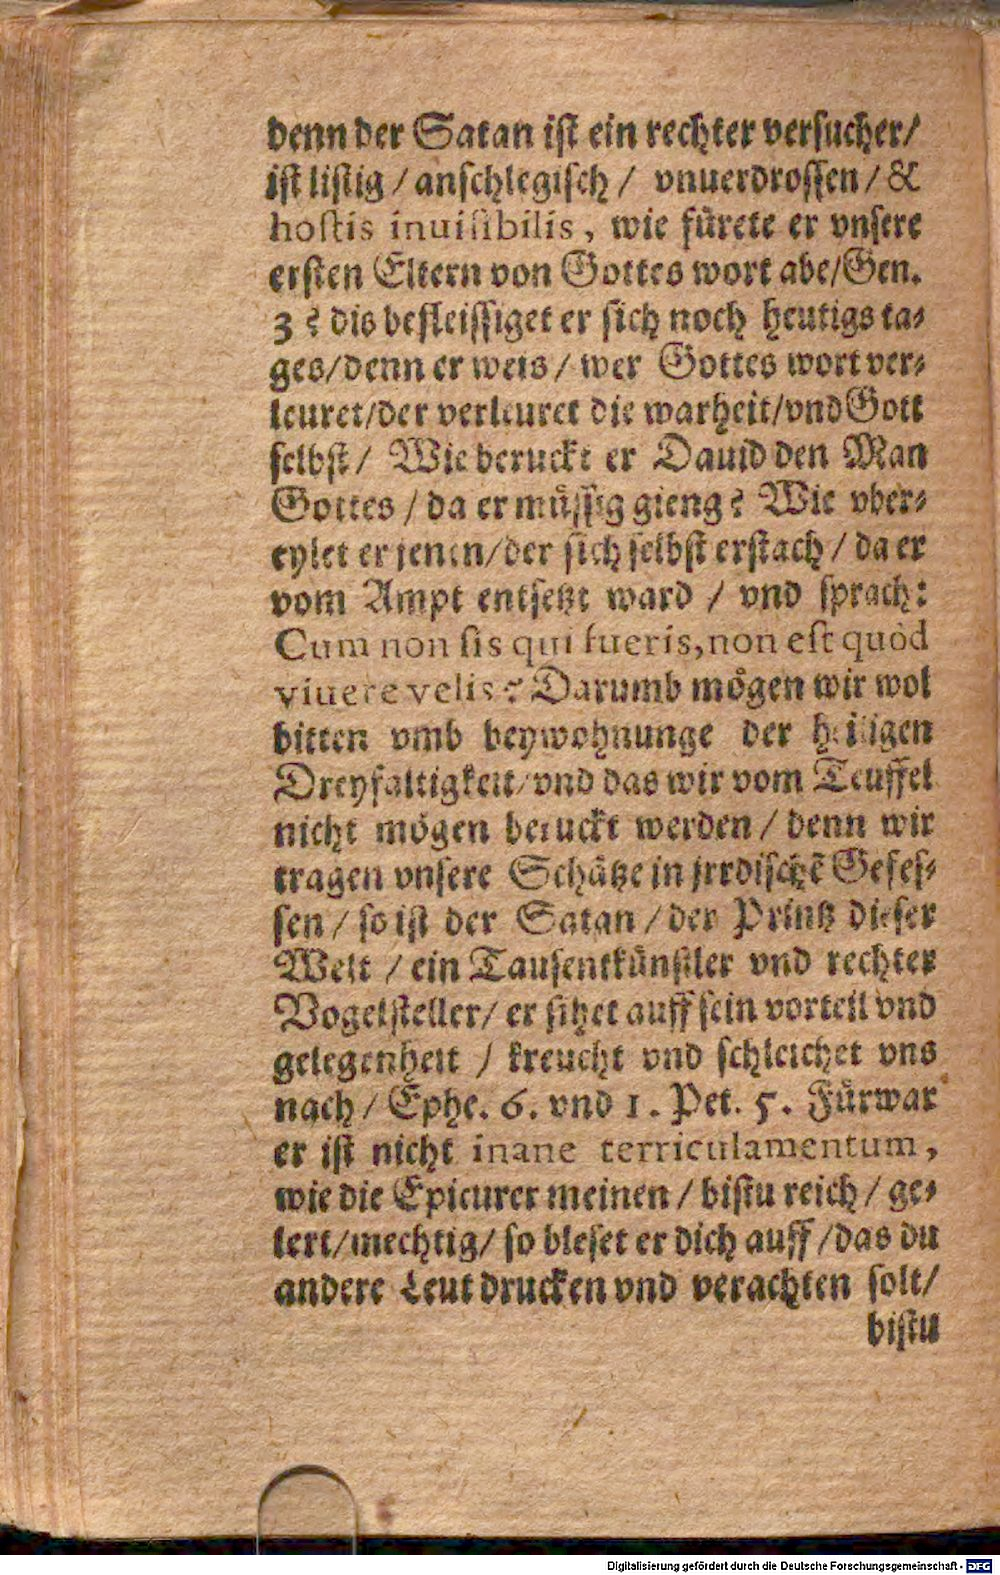 denn der Satan iſt ein rechter verſucher/
iſt liſtig / anſchlegiſch / vnuerdroſſen / &
hoſtis inuiſibilis, wie fürete er vnſere
erſten Eltern von Gottes wort abe/Gen.
3? dis befleiſſiget er ſich noch heutigs ta-
ges/denn er weis / wer Gottes wort ver-
leuret/der verleuret die warheit/vnd Gott
ſelbſt/ Wie beruckt er Dauid den Man
Gottes / da er müſſig gieng? Wie vber-
eylet er jenen/der ſich ſelbſt erſtach / da er
vom Ampt entſetzt ward / vnd ſprach:
Cum non ſis qui fueris, non eſt quòd
viuere velis? Darumb mögen wir wol
bitten vmb beywohnunge der heiligen
Dreyfaltigkeit/vnd das wir vom Teuffel
nicht mögen beruckt werden / denn wir
tragen vnſere Schätze in jrrdiſchẽ Gefeſ-
ſen / ſo iſt der Satan / der Printz dieſer
Welt / ein Tauſentkünſtler vnd rechter
Vogelſteller/ er ſihet auff ſein vorteil vnd
gelegenheit / kreucht vnd ſchleichet vns
nach/ Ephe. 6. vnd 1. Pet. 5. Fürwar
er iſt nicht inane terriculamentum,
wie die Epicurer meinen / biſtu reich / ge-
lert/mechtig/ ſo bleſet er dich auff /das du
andere Leut drucken vnd verachten ſolt/
biſtu
Digitalisierung gefördert durch die Deutsche Forschungsgemeinschaft - DFG